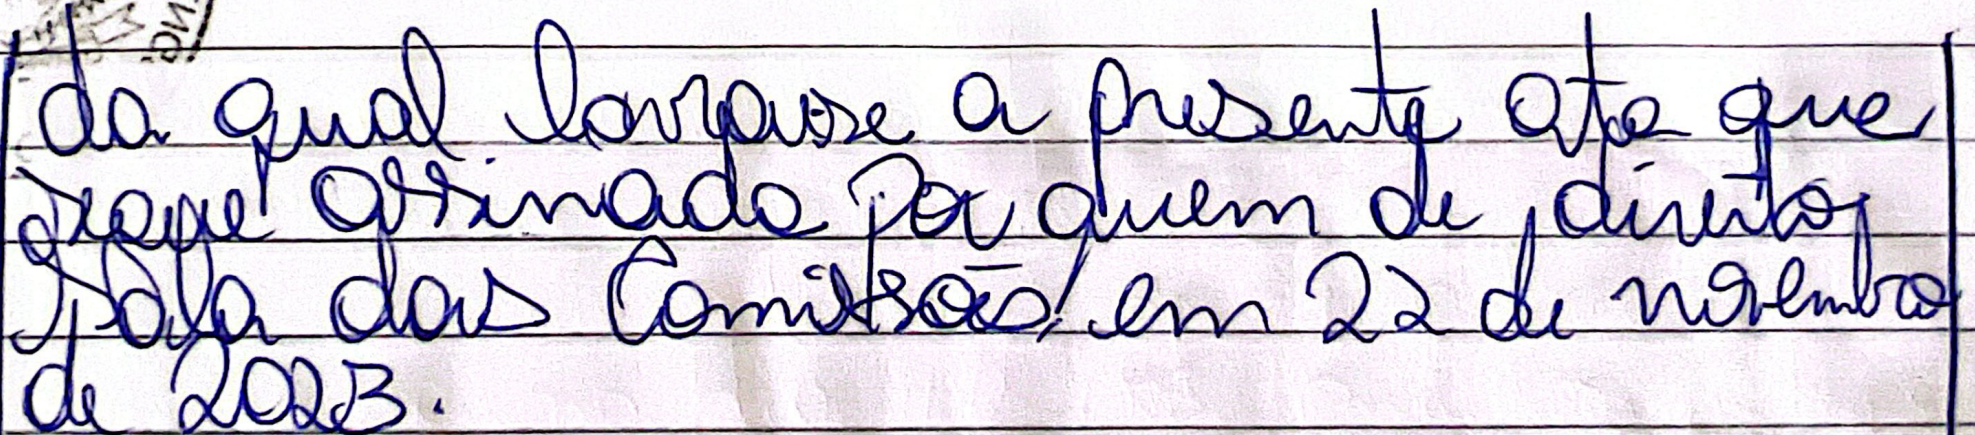 da qual lavrou-se a presente ata que
segue assinada por quem de direito,
Sala das Comissões, em 22 de novembro
de 2023.